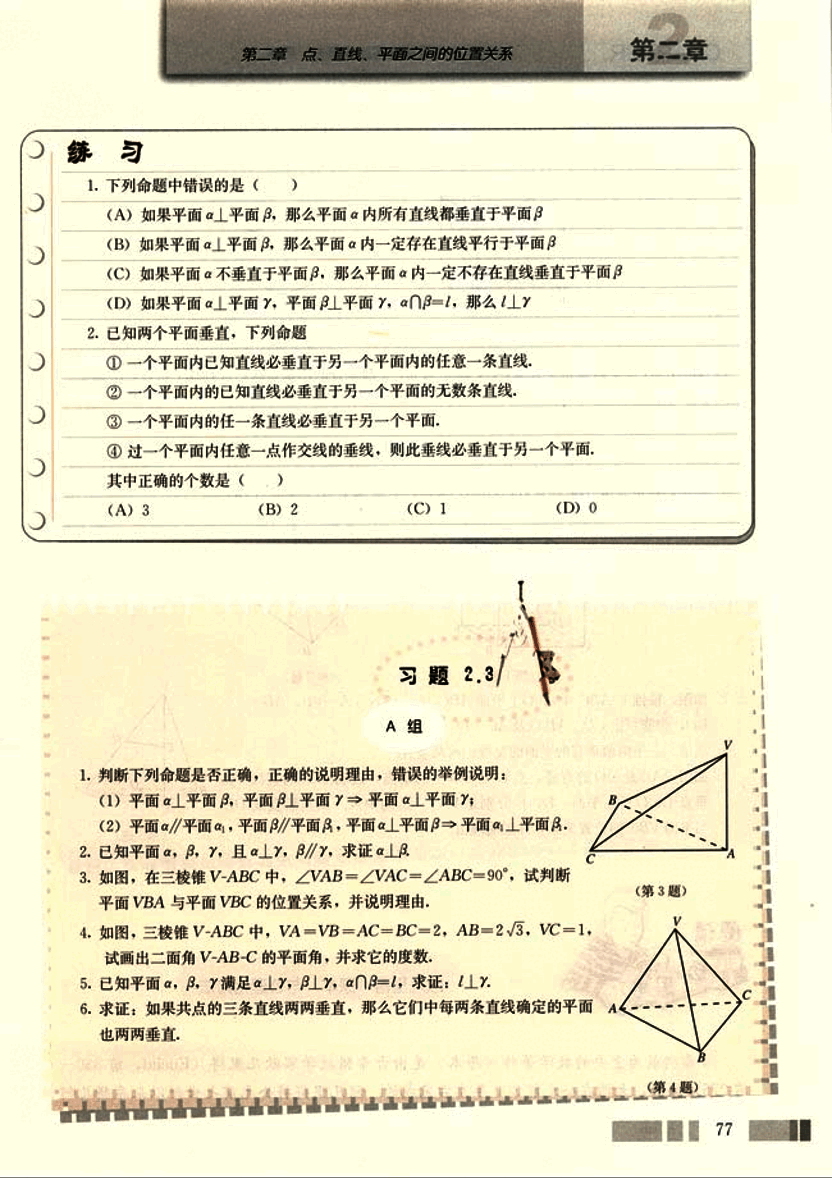 第二章 点、直线、平面之间的位置关系
第二章
练 习
1. 下列命题中错误的是( )
(A) 如果平面α⊥平面β,那么平面α内所有直线都垂直于平面β
(B) 如果平面α⊥平面β,那么平面α内一定存在直线平行于平面β
(C) 如果平面α不垂直于平面β,那么平面α内一定不存在直线垂直于平面β
(D) 如果平面α⊥平面γ,平面β⊥平面γ,α∩β=l,那么l⊥γ
2. 已知两个平面垂直,下列命题
① 一个平面内已知直线必垂直于另一个平面内的任意一条直线.
② 一个平面内的已知直线必垂直于另一个平面的无数条直线.
③ 一个平面内的任一条直线必垂直于另一个平面.
④ 过一个平面内任意一点作交线的垂线,则此垂线必垂直于另一个平面.
其中正确的个数是( )
(A) 3 (B) 2 (C) 1 (D) 0
习 题 2.3
A 组
1. 判断下列命题是否正确,正确的说明理由,错误的举例说明:
(1) 平面α⊥平面β,平面β⊥平面γ⇒平面α⊥平面γ;
(2) 平面α∥平面α₁,平面β∥平面β₁,平面α⊥平面β⇒平面α₁⊥平面β₁.
2. 已知平面α,β,γ,且α⊥γ,β∥γ,求证α⊥β.
3. 如图,在三棱锥V-ABC中,∠VAB=∠VAC=∠ABC=90°,试判断
平面VBA与平面VBC的位置关系,并说明理由.
V
B
C
A
(第3题)
4. 如图,三棱锥V-ABC中,VA=VB=AC=BC=2,AB=2√3,VC=1,
试画出二面角V-AB-C的平面角,并求它的度数.
5. 已知平面α,β,γ满足α⊥γ,β⊥γ,α∩β=l,求证:l⊥γ.
6. 求证:如果共点的三条直线两两垂直,那么它们中每两条直线确定的平面
也两两垂直.
V
A
C
B
(第4题)
77